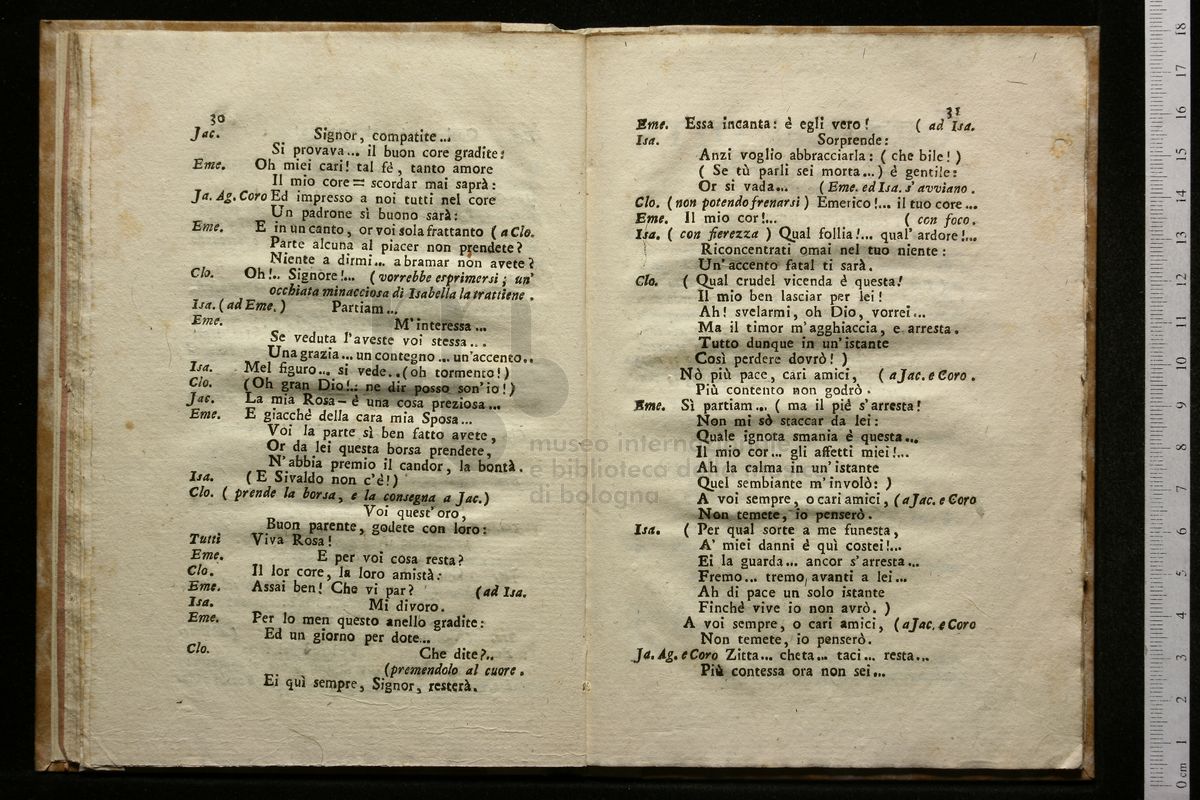 30
Jac. Signor, compatite...
Si provava... il buon core gradite:
Eme. Oh miei cari! tal fè, tanto amore
Il mio core= scordar mai saprà:
Ja. Ag. Coro Ed impresso a noi tutti nel core
Un padrone sì buono sarà:
Eme. E in un canto, or voi sola frattanto (a Clo.
Parte alcuna al piacer non prendete?
Niente a dirmi... abramar non avete?
Clo. Oh!.. Signore!... (vorrebbe esprimersi; un'
occhiata minacciosa di Isabella la trattiene.
Isa. (ad Eme.) Partiam...
Eme. M'interessa...
Se veduta l'aveste voi stessa...
Una grazia... un contegno... un'accento..
Isa. Mel figuro... si vede..(oh tormento!)
Clo. (Oh gran Dio!.. ne dir posso son'io!)
Jac. La mia Rosa- è una cosa preziosa...
Eme. E giacchè della cara mia Sposa...
Voi la parte sì ben fatto avete,
Or da lei questa borsa prendete,
N'abbia premio il candor, la bontà.
Isa. (E Sivaldo non c'è!)
Clo. (prende la borsa, e la consegna a Jac.)
Voi quest'oro,
Buon parente, godete con loro:
Tutti Viva Rosa!
Eme. E per voi cosa resta?
Clo. Il lor core, la loro amistà:
Eme. Assai ben! Che vi par? (ad Isa.
Isa. Mi divoro.
Eme. Per lo men questo anello gradite:
Ed un giorno per dote...
Clo. Che dite?..
(premendolo al cuore.
Ei quì sempre, Signor, resterà.
31
Eme. Essa incanta: è egli vero! (ad Isa.
Isa. Sorprende:
Anzi voglio abbracciarla: (che bile!)
(Se tù parli sei morta...) è gentile:
Or si vada... (Eme. ed Isa. s'avviano.
Clo. (non potendo frenarsi) Emerico!... il tuo core...
Eme. Il mio cor!... (con foco.
Isa. (con fierezza) Qual follia!... qual'ardore!...
Riconcentrati omai nel tuo niente:
Un'accento fatal ti sarà.
Clo. (Qual crudel vicenda è questa!
Il mio ben lasciar per lei!
Ah! svelarmi, oh Dio, vorrei...
Ma il timor m'agghiaccia, e arresta.
Tutto dunque in un'istante
Così perdere dovrò!)
Nò più pace, cari amici, (a Jac. e Coro.
Più contento non godrò.
Eme. Sì partiam... (ma il piè s'arresta!
Non mi sò staccar da lei:
Quale ignota smania è questa...
Il mio cor... gli affetti miei!...
Ah la calma in un'istante
Quel sembiante m'involò:)
A voi sempre, o cari amici, (a Jac. e Coro
Non temete, io penserò.
Isa. (Per qual sorte a me funesta,
A' miei danni è quì costei!...
Ei la guarda... ancor s'arresta...
Fremo... tremo, avanti a lei...
Ah di pace un solo istante
Finchè vive io non avrò.)
A voi sempre, o cari amici, (a Jac. e Coro
Non temete, io penserò.
Ja. Ag. e Coro Zitta... cheta... taci... resta...
Più contessa ora non sei...
museo interna
e biblioteca d
di bologna
0 cm 1 2 3 4 5 6 7 8 9 10 11 12 13 14 15 16 17 18